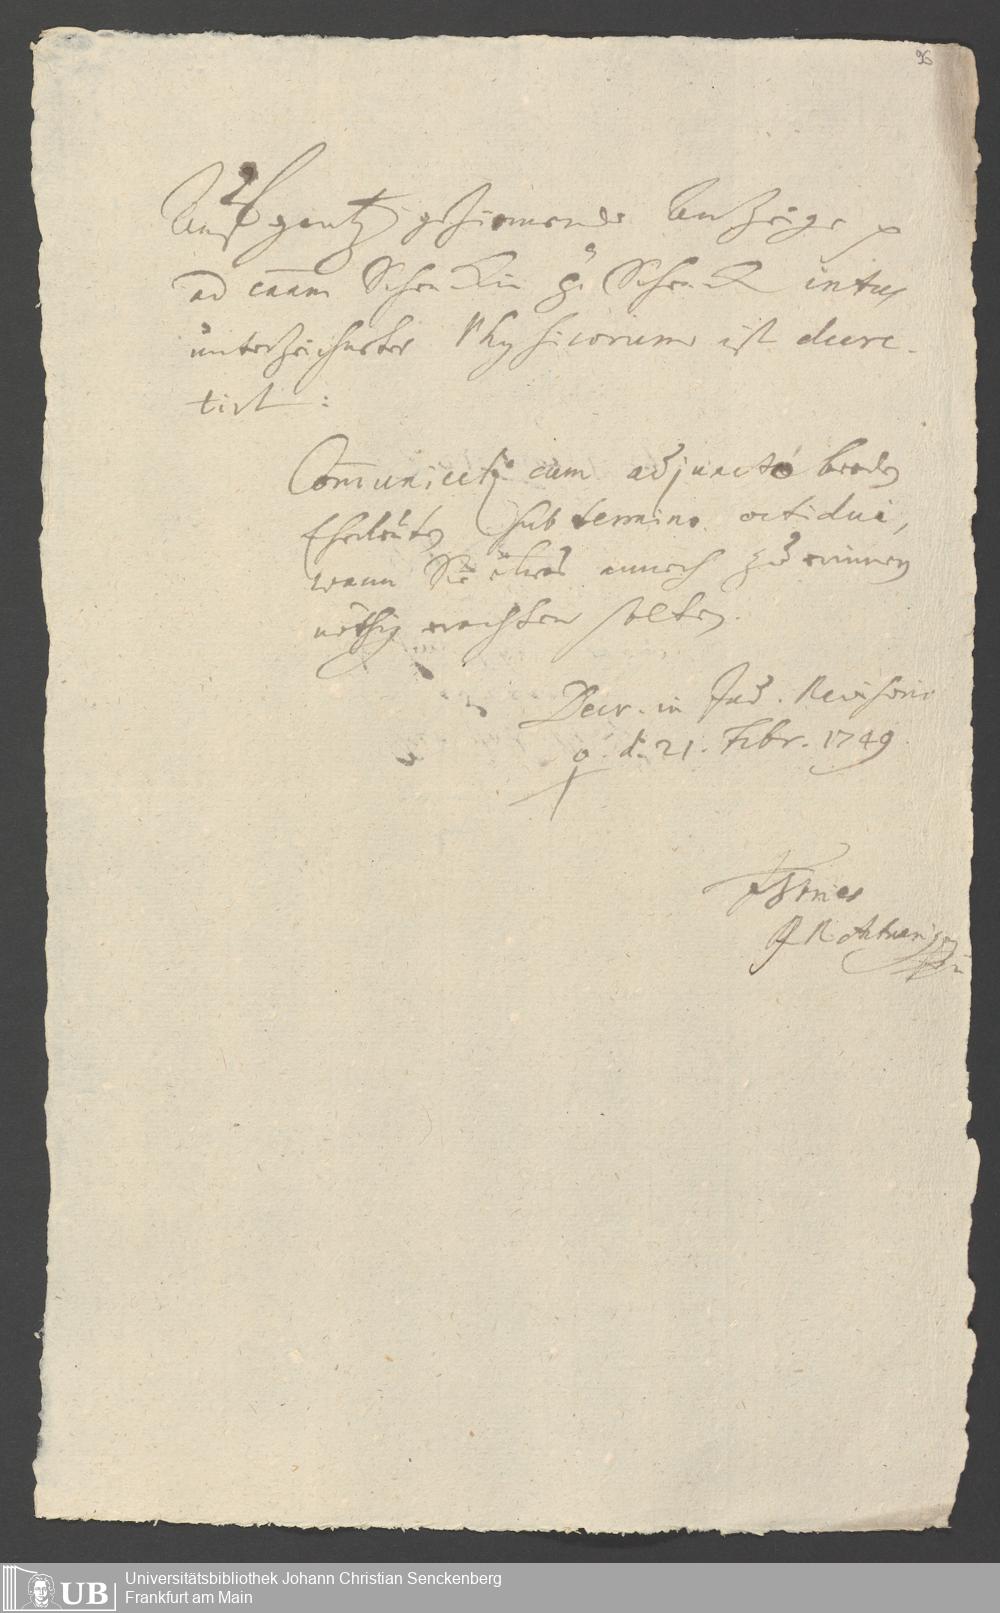 96
Auff gantz geziemende Anzeige
ad causam Schenckin ꝫ Schenck intus
unterzeichneter Physicorum ist decre-
tirt:
Com̄unicetur cum adjuncto beeden
Eheleuten sub termino octidui,
wann Sie etwas annoch zu erinnern
nöthig erachten solten.
Decr. in Jud. Revisorio
d. 21. Febr. 1749
J. R. Actuarius
UB
Universitätsbibliothek Johann Christian Senckenberg
Frankfurt am Main